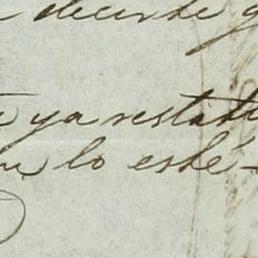 decirte q
ya restab
lo esté